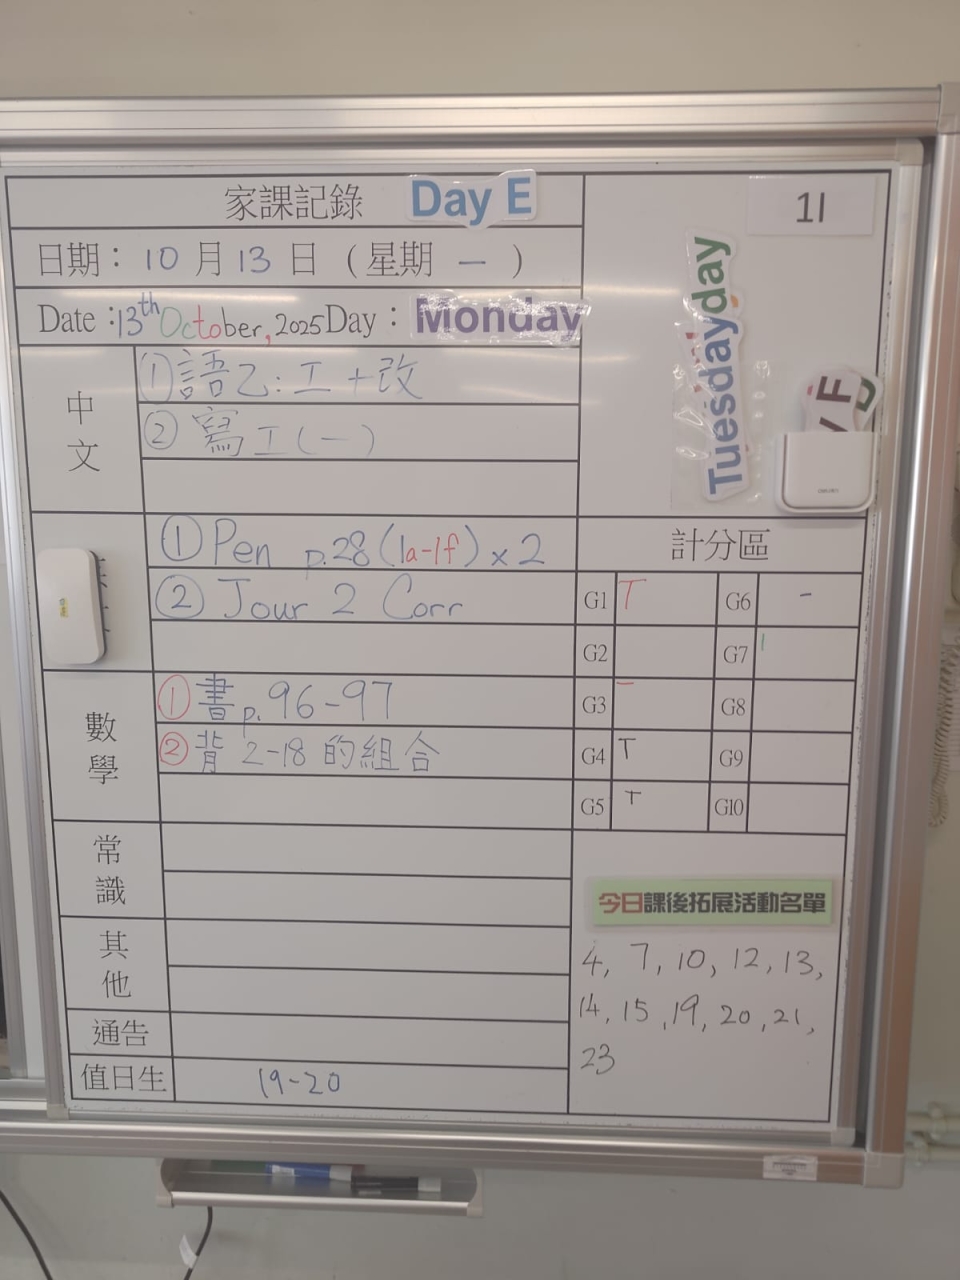 家課記錄 Day E
1I
日期：10月13日（星期一）
Date：13th October, 2025 Day：Monday
Tuesday
day
中文
①語乙：工+改
②寫工(一)
①Pen p.28(1a-1f)×2
②Jour 2 Corr
數學
①書p.96-97
②背2-18的組合
常識
其他
通告
值日生 19-20
計分區
G1 T G6 -
G2 G7 |
G3 一 G8
G4 T G9
G5 T G10
今日課後拓展活動名單
4, 7, 10, 12, 13,
14, 15, 19, 20, 21,
23